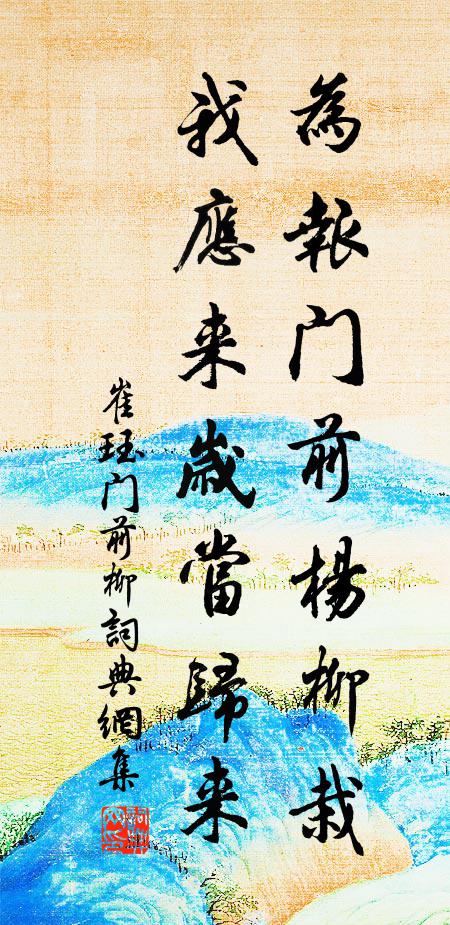 為報门前楊柳栽
我應来歲當歸来
崔珏门前柳詞典網集